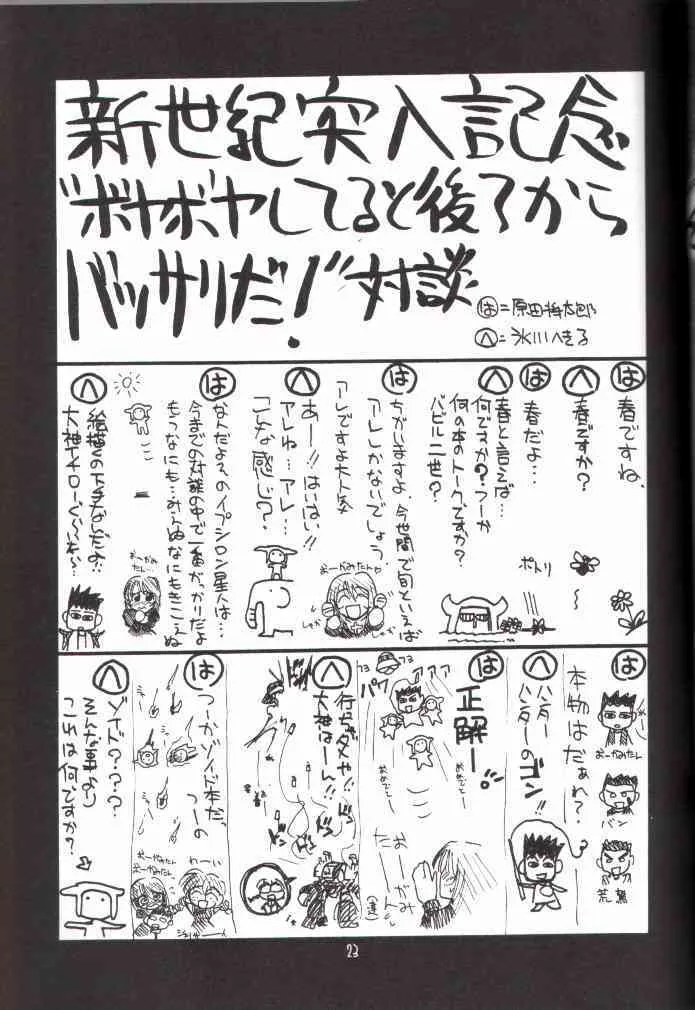 新世紀突入記念
"ボヤボヤしてると後ろから
バッサリだ!"対談
は=原田将太郎
へ=氷川へきる
は
春ですね。
へ
春ですか?
は
春だよ…
ポトリ
へ
春と言えば…
何ですか?つーか
何の本のトークですか?
バビル二世?
は
ちがいますよ、今世間で旬といえば
アレしかないでしょう。
アレですよ大人気
おーかみたん
へ
あー!!はいはい!!
アレね…アレ…
こんな感じ?
は
なんだよそのイプシロン星人は…
今までの対談の中で一番がっかりだよ
もうなにも…みえぬなにもきこえぬ
おーかみたん…
へ
絵描くの下手なんだよ…
大神イチローぐらいを…
は
本物はだぁれ?
おーかみたん
バン
荒鷲
へ
ハンターハンターのゴン!!
は
正解ー。
おめでとー
おめでとー
パワァアアア
おーがみたーん
へ
行ちゃダメや!!
大神はーん!!
ドン
ドン
ドン
は
つーかゾイド本だっつーの
おーかみたん
おーかみたん
わーい
へ
ゾイド???
そんな事より
これは何ですか?
23